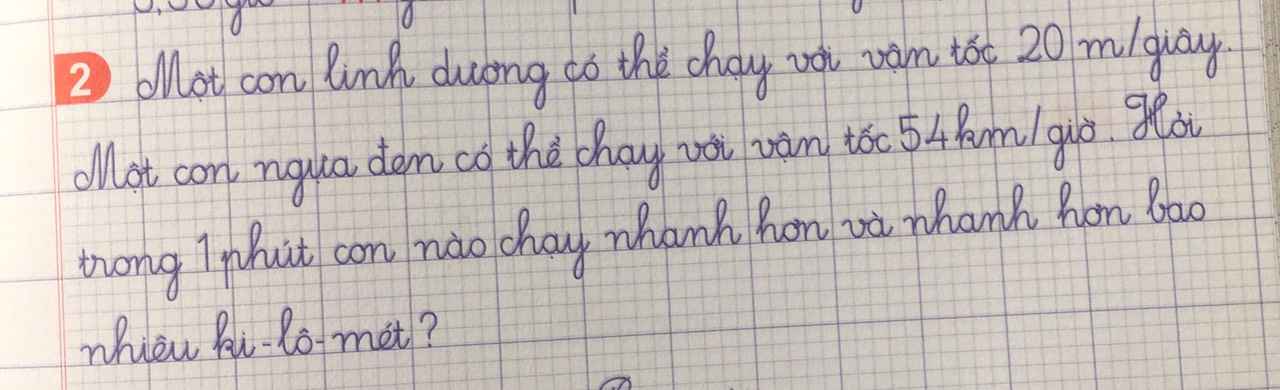 2 Một con linh dương có thể chạy với vận tốc 20 m/giây.
Một con ngựa đen có thể chạy với vận tốc 54 km/giờ. Hỏi
trong 1 phút con nào chạy nhanh hơn và nhanh hơn bao
nhiêu ki-lô-mét?